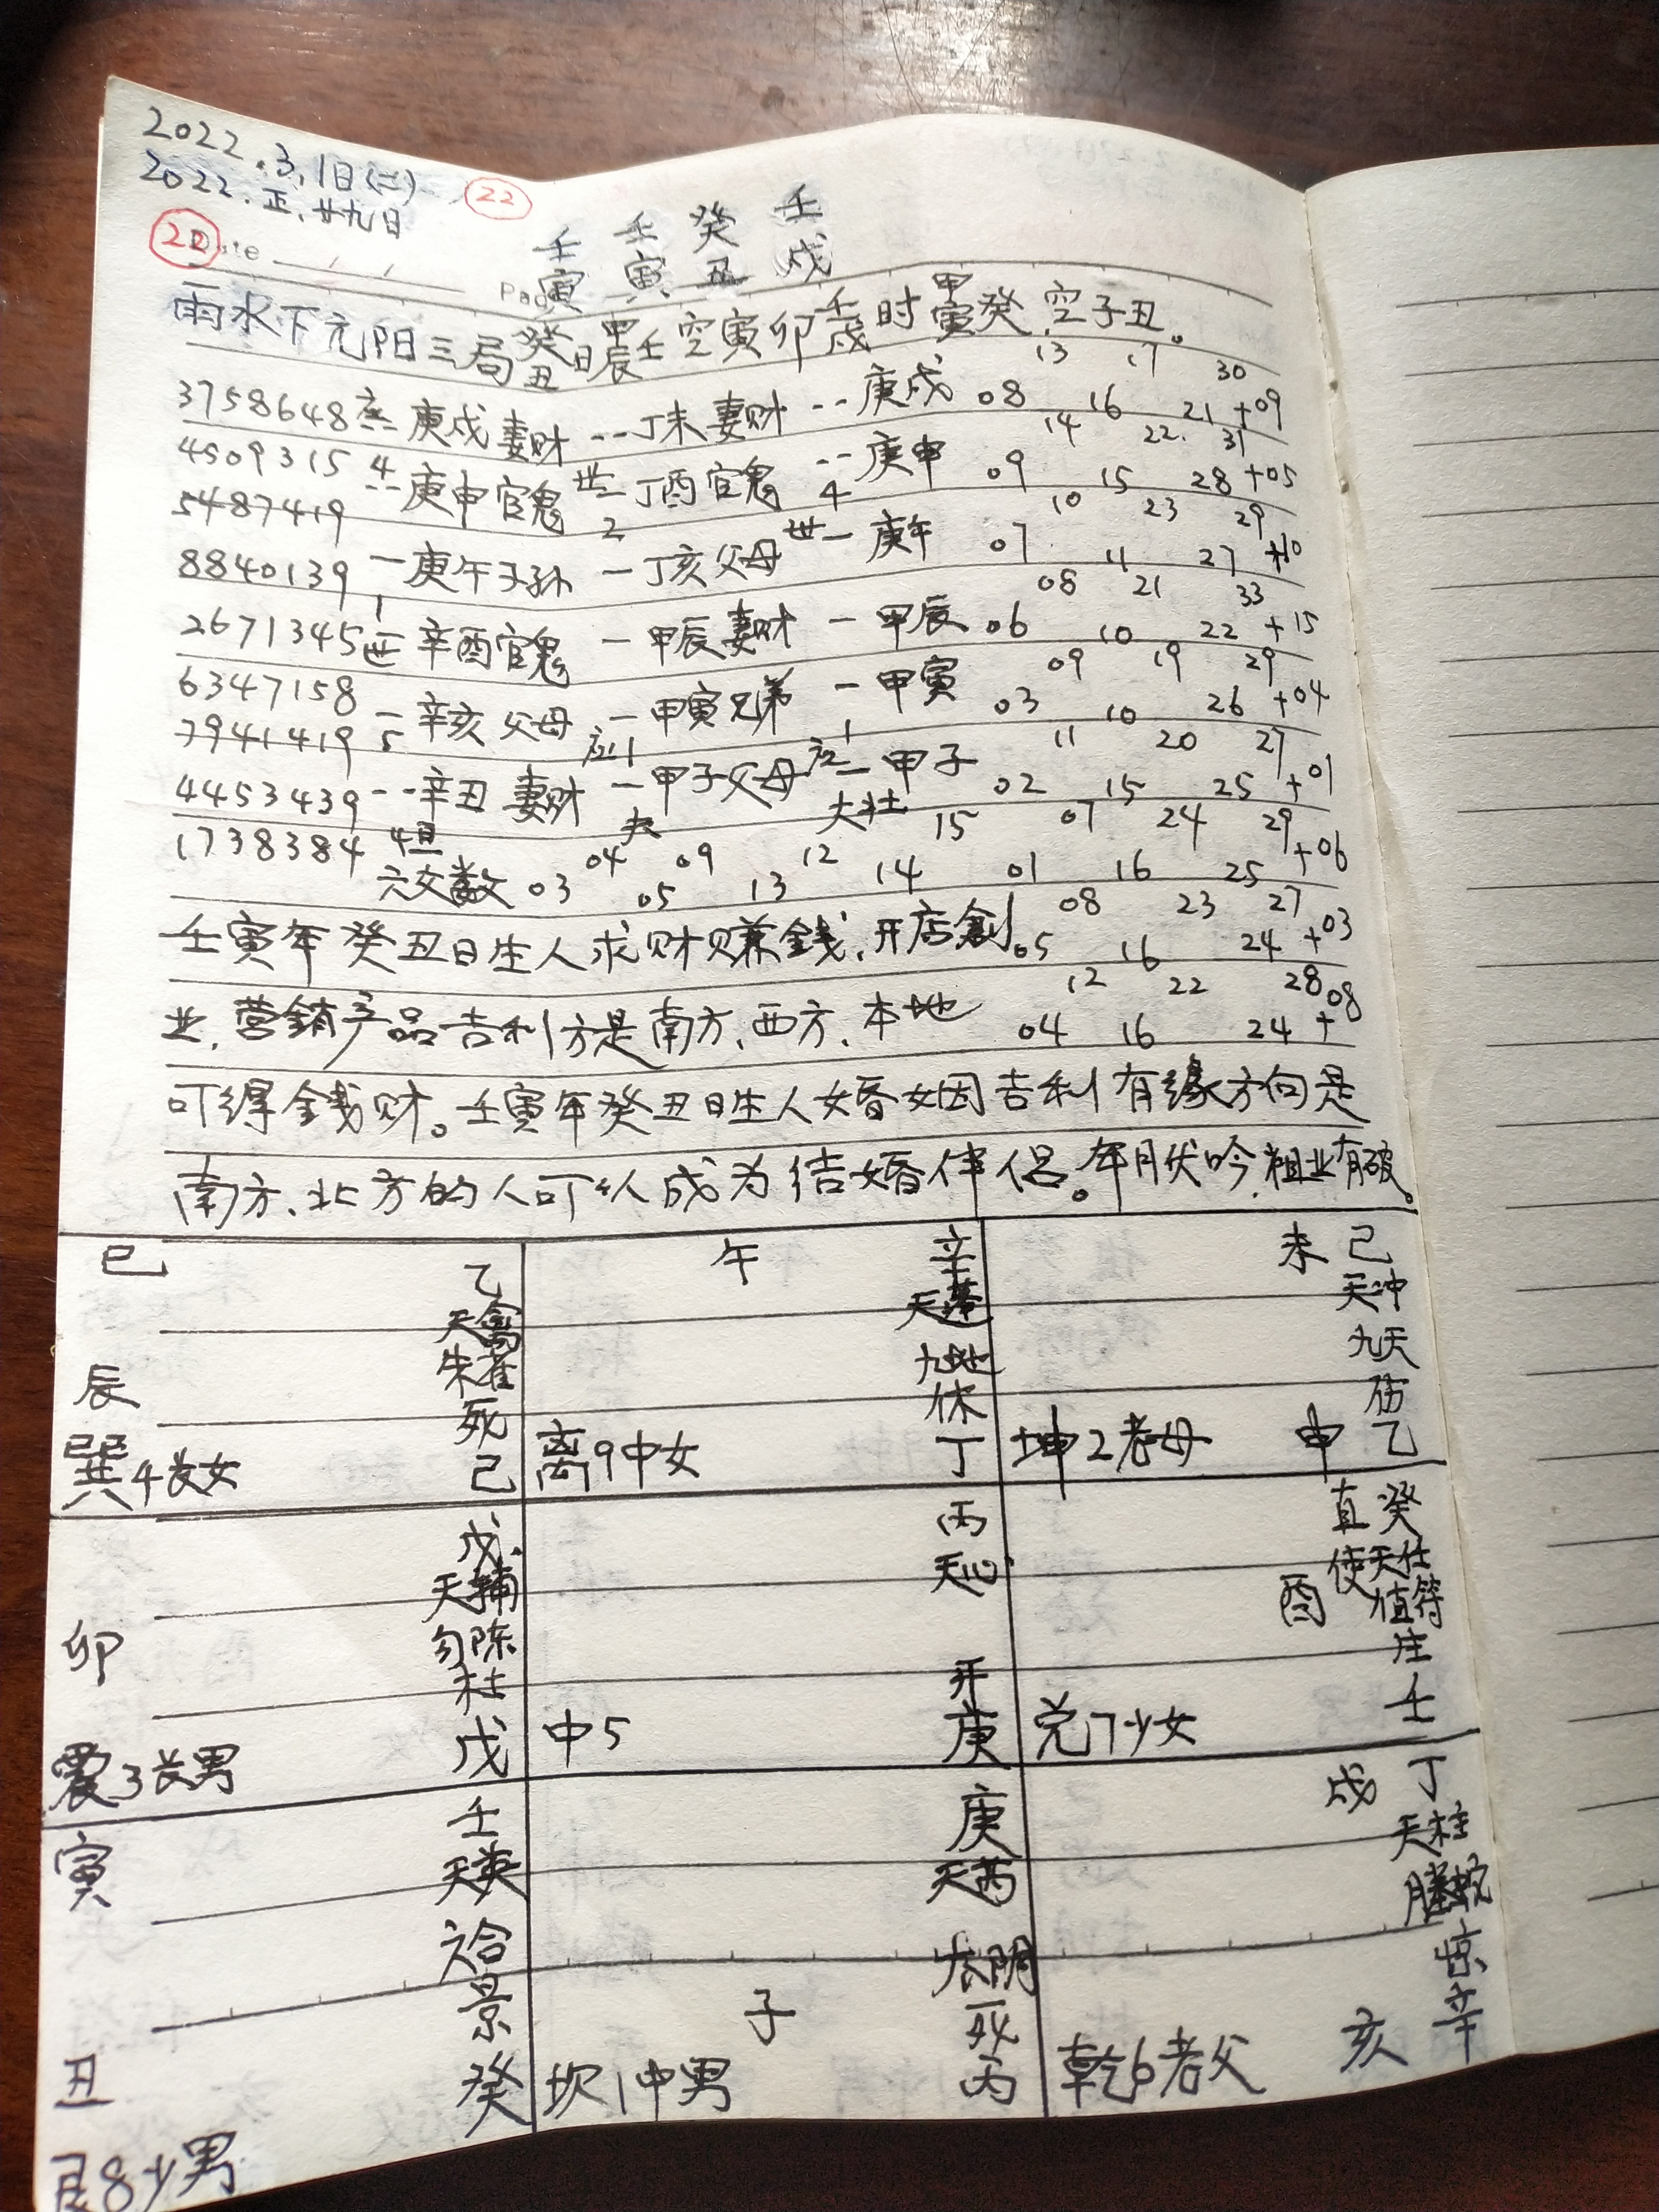 2022.3.1日(二) 22
2022.正.廿九日
22 Date
壬 壬 癸 壬
寅 寅 丑 戌
雨水下元阳三局癸丑日甲辰壬空寅卯壬戌时甲寅癸.空子丑。
13 17 30
3758648 庚戌妻财 -- 丁未妻财 -- 庚戌 08 16 21 +09
14 22. 31
4509315 4 -- 庚申官鬼 世 丁酉官鬼 -- 庚申 09 15 28 +05
5487419 2 4 10 23 29
8840139 一 庚午子孙 一 丁亥父母 世一 庚午 07 11 27 +10
1 08 21 33
2671345 世 辛酉官鬼 一 甲辰妻财 一 甲辰 06 10 22 +15
09 19 29
6347158 一 辛亥父母 一 甲寅兄弟 一 甲寅 03 10 26 +04
7941419 5 应1 1 11 20 27
4453439 -- 辛丑妻财 一 甲子父母 应一 甲子 02 15 25 +01
夬 大壮 15 07 24 29
1738384 恒 04 09 12 14 01 16 25 +06
六爻数 03 05 13 08 23 27
壬寅年癸丑日生人求财赚錢.开店創 05 16 24 +03
12 22 28
业.营銷产品吉利方是南方.西方.本地 04 16 24 +08
可得金钱财。壬寅年癸丑日生人婚姻吉利有缘方向是
南方.北方的人可以成为结婚伴侣。年月伏吟.祖业有破。
巳 乙 午 辛 未 己
天禽 天蓬 天冲
朱雀 九地 九天
辰 死 休 伤
巽4长女 己 离9中女 丁 坤2老母 申 乙
戊 丙 直 癸
天辅 天心 使 天任
卯 勾陈 酉 值符
杜 开 生
震3长男 戊 中5 庚 兑7少女 壬
壬 庚 戌 丁
寅 天英 天芮 天柱
六合 太阴 螣蛇
景 子 死 惊
丑 癸 坎1中男 丙 乾6老父 亥 辛
艮8少男